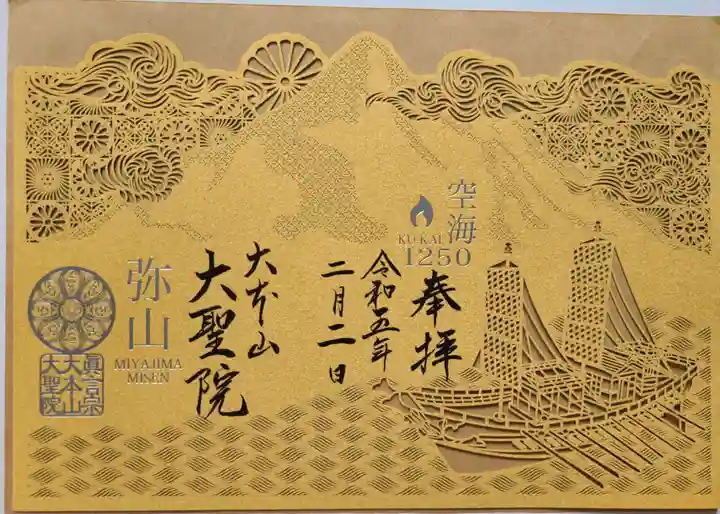 奉拝
空海
KUKAI
1250
令和五年
二月二日
大本山
大聖院
弥山
MIYAJIMA
MISEN
眞言宗
大本山
大聖院